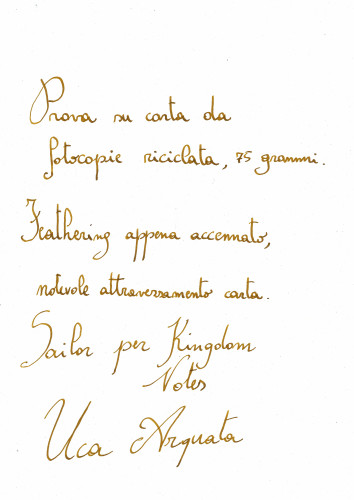 Prova su carta da
fotocopie riciclata, 75 grammi.
Feathering appena accennato,
notevole attraversamento carta.
Sailor per Kingdom
Notes
Uca Arquata